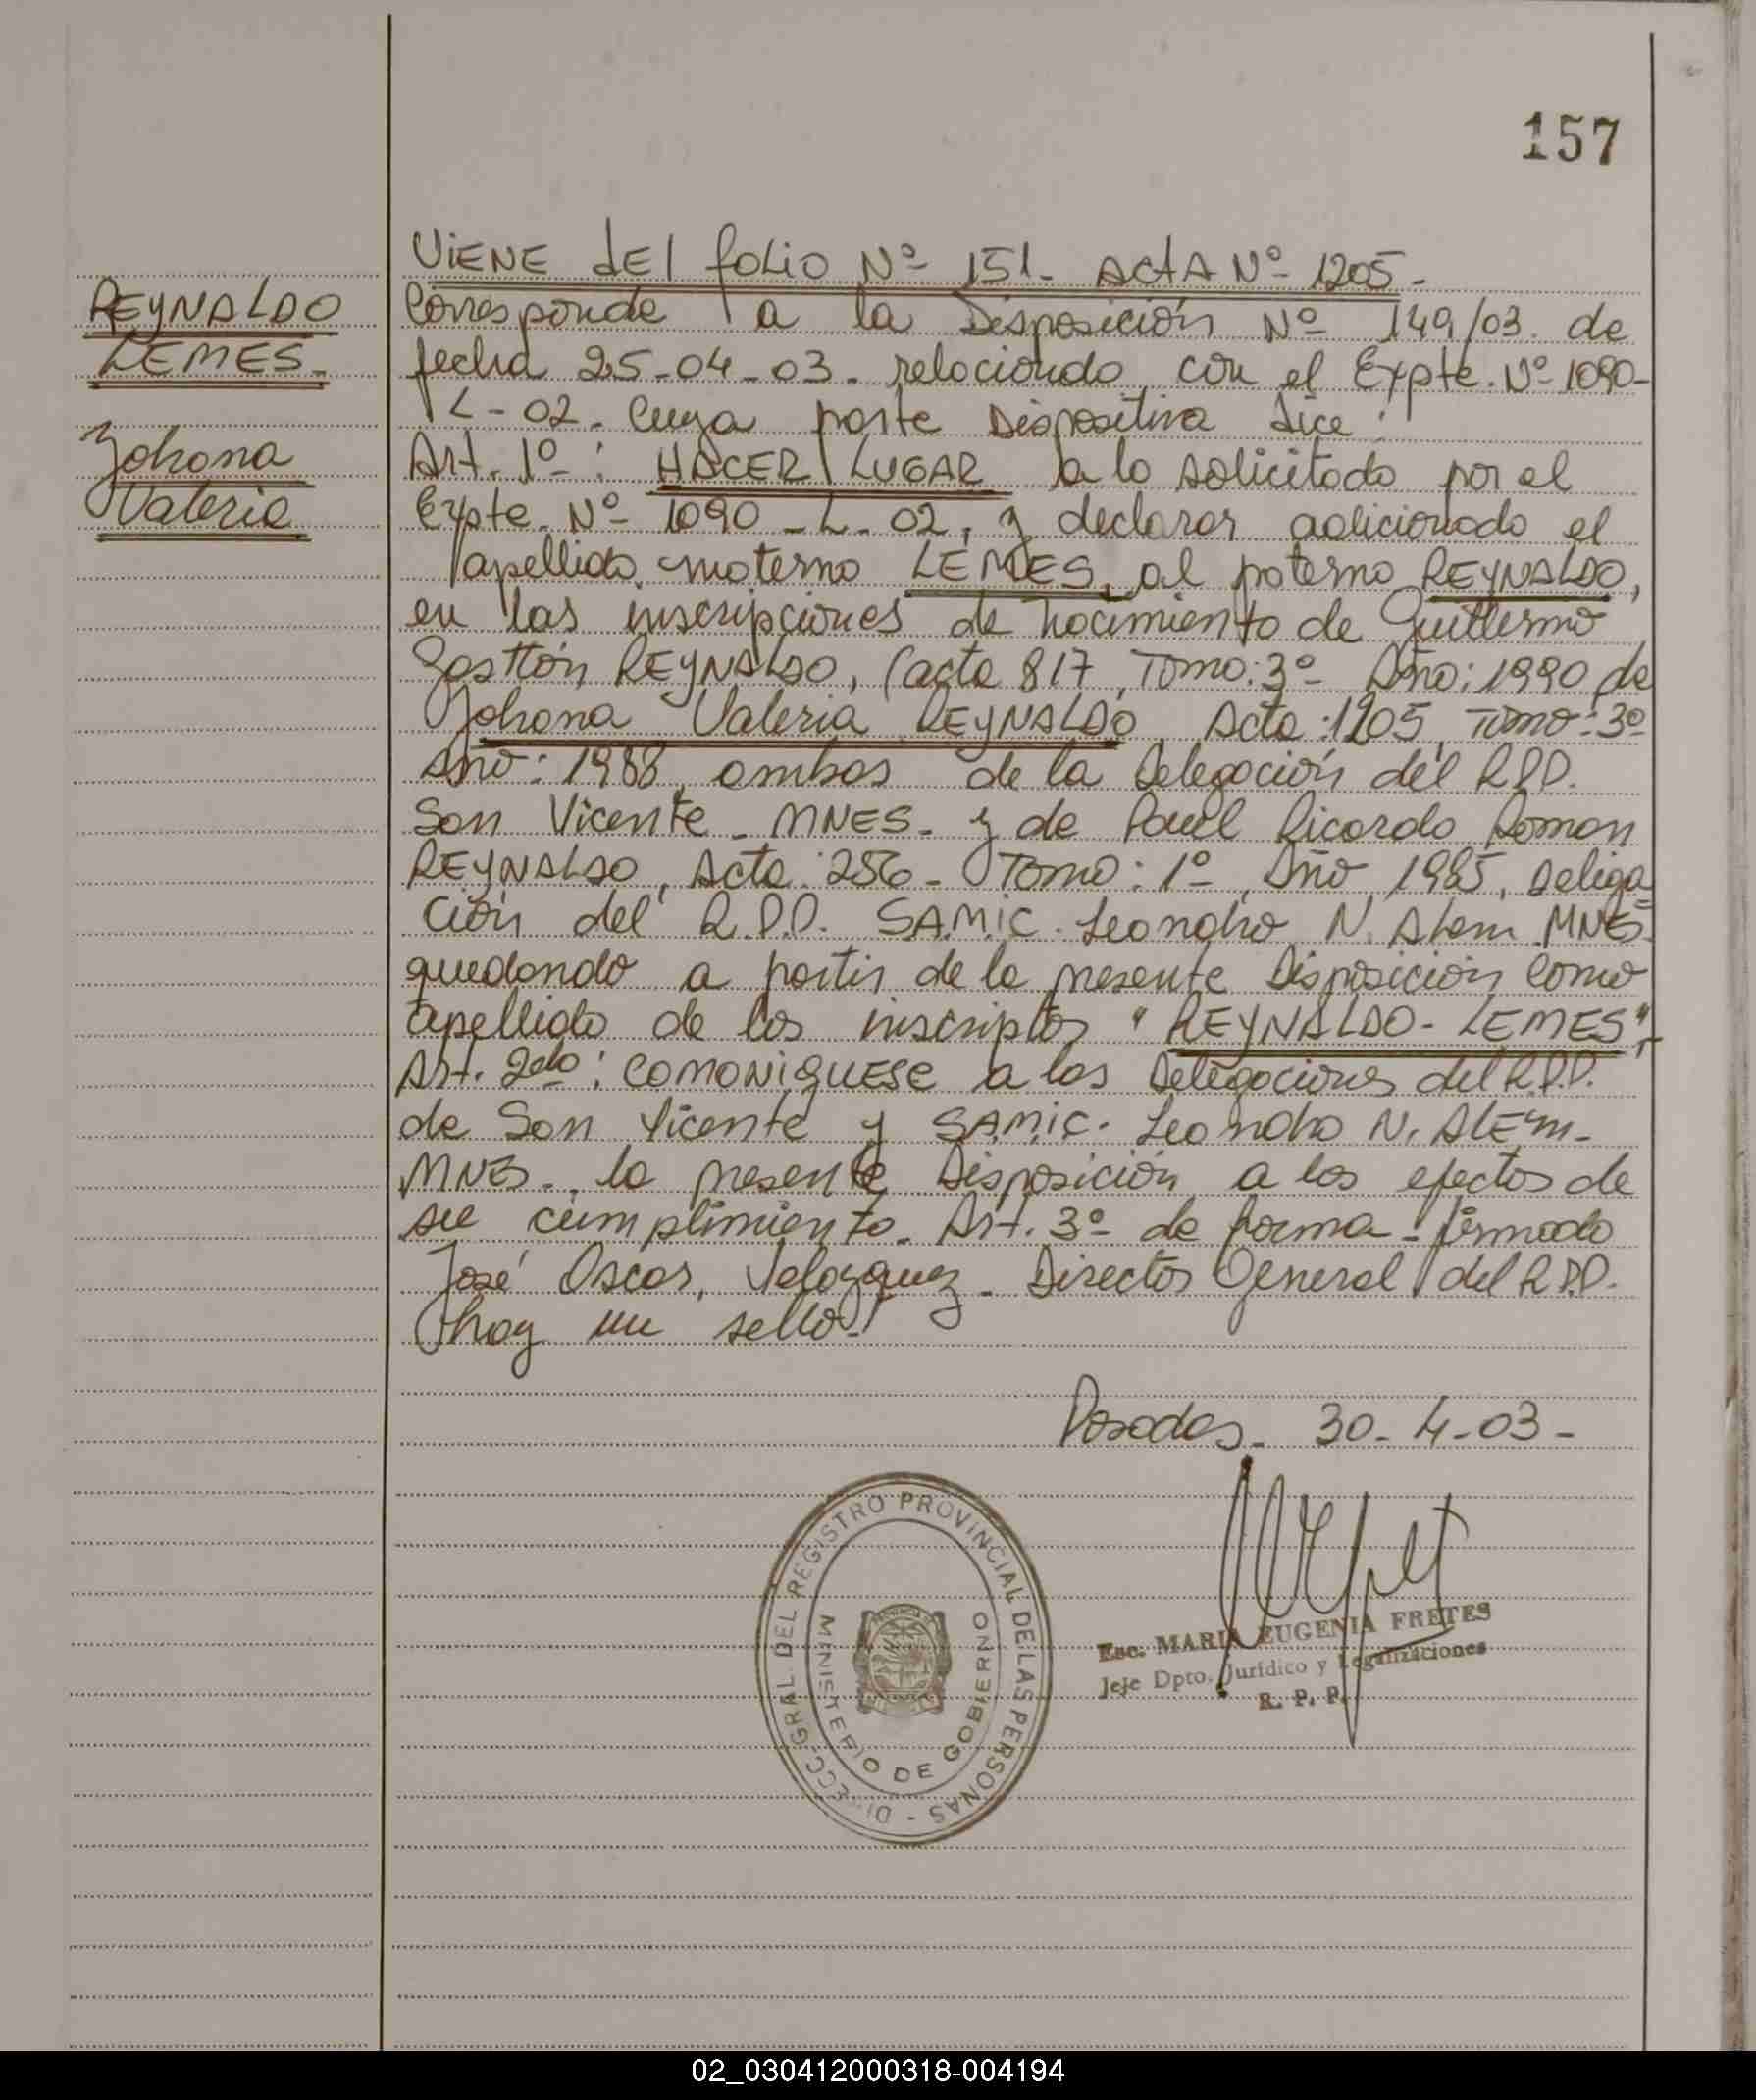 157
VIENE dEl folio Nº 151- ACTA Nº 1205-
REYNALDO
LEMES-
Johana
Valeria
Corresponde a la Disposición Nº 149/03. de
fecha 25-04-03- relacionado con el Expte. Nº 1090-
L-02- Cuya parte Dispositiva dice:
Art. 1º: HACER LUGAR a lo solicitado por el
Expte. Nº 1090-L-02, y declarar adicionado el
apellido materno LEMES, al paterno REYNALDO,
en las inscripciones de nacimiento de Guillermo
Gastón REYNALDO, (acta 817, Tomo: 3º Año: 1990 de
Johana Valeria REYNALDO, Acta: 1205, Tomo: 3º
Año: 1988, ambos de la Delegación del R.P.P.
San Vicente- MNES- y de Raúl Ricardo Ramon
REYNALDO, Acta: 256- Tomo: 1º, Año 1985, Delega
ción del R.P.P. SAMIC. Leandro N. Alem MNES-
quedando a partir de la presente Disposición como
apellido de los inscriptos "REYNALDO-LEMES",
Art. 2do: COMONIQUESE a las Delegaciones del R.P.P.
de San Vicente y SAMIC. Leandro N. ALEm-
MNES-, la presente Disposición a los efectos de
su cumplimiento. Art. 3º de forma- firmado
José Oscar, Velazquez- Director General del R.P.P.
hay un sello-
Posadas- 30-4-03-
DIRECC. GRAL. DEL REGISTRO PROVINCIAL DE LAS PERSONAS -
MINISTERIO DE GOBIERNO
Esc. MARIA EUGENIA FRETES
Jeje Dpto. Jurídico y Legalizaciones
R. P. P.
02_030412000318-004194